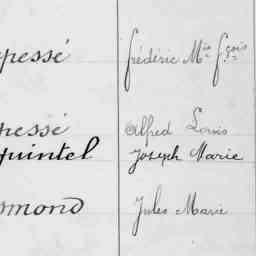 pessé Frédéric Mie Fçois
pessé Alfred Louis
quintel Joseph Marie
mond Jules Marie